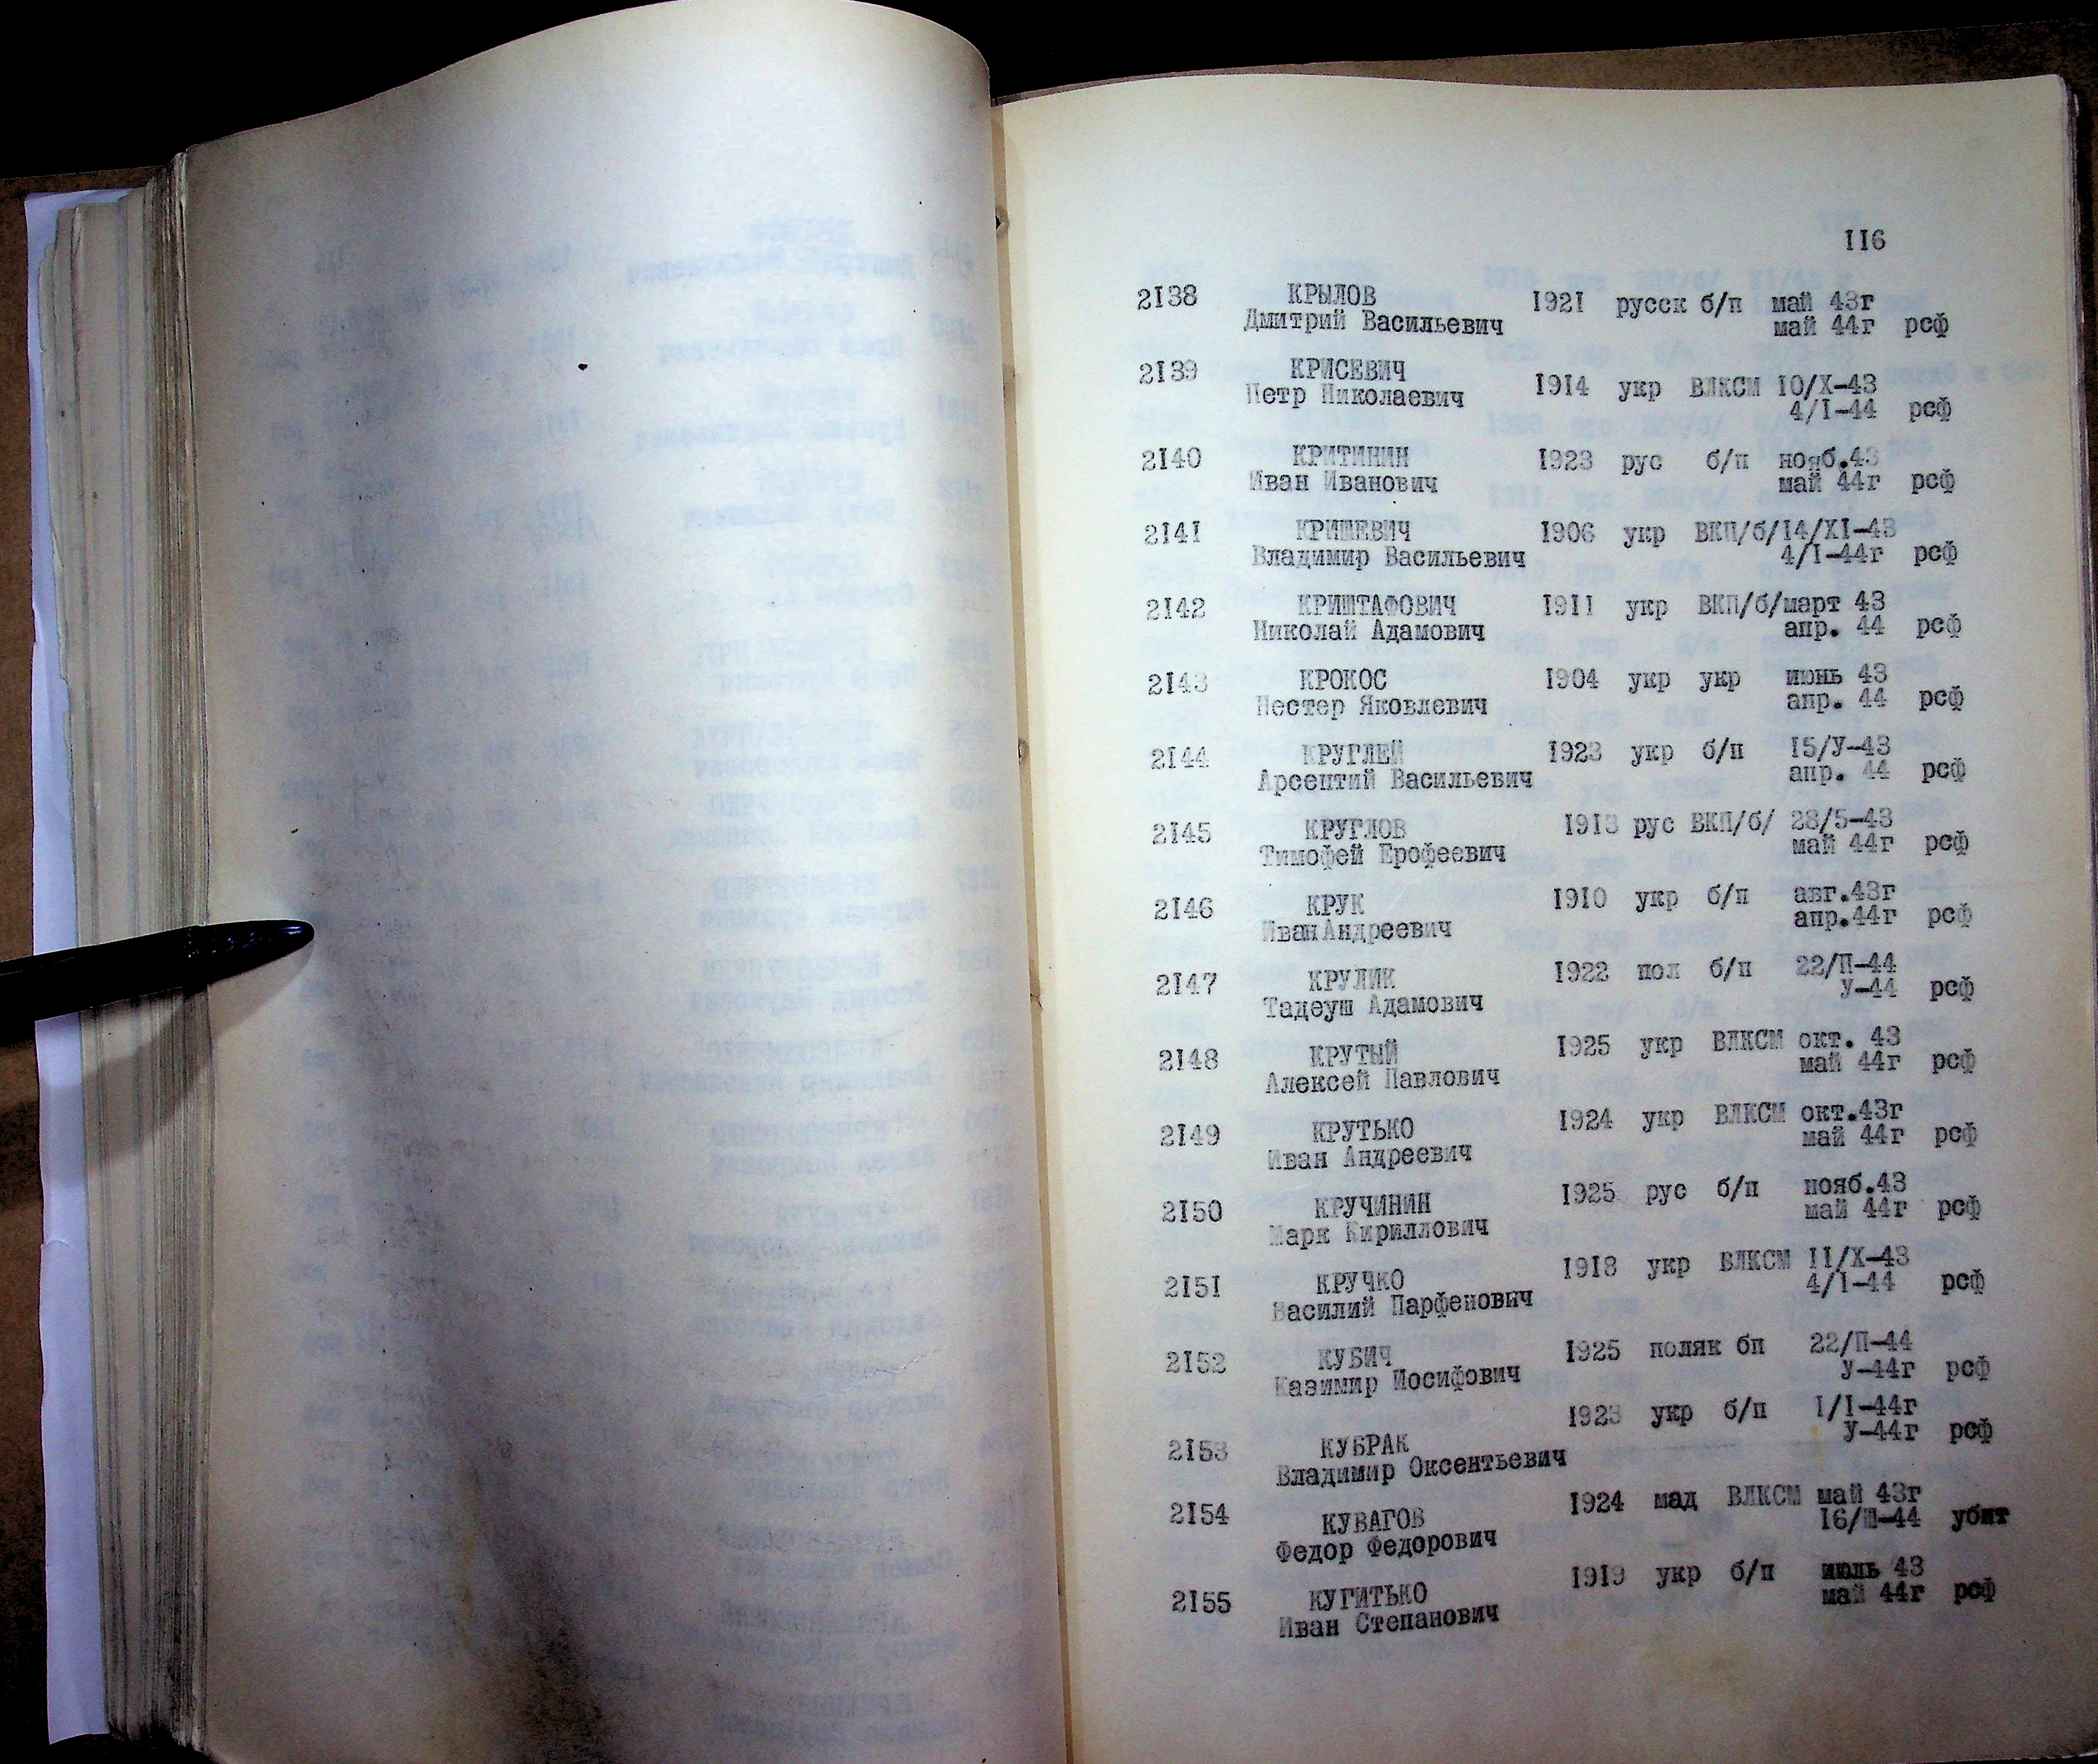 116
2138 КРЫЛОВ 1921 русск б/п май 43г
Дмитрий Васильевич май 44г рсф
2139 КРИСЕВИЧ 1914 укр ВЛКСМ 10/X-43
Петр Николаевич 4/I-44 рсф
2140 КРИТИНИН 1923 рус б/п нояб.43
Иван Иванович май 44г рсф
2141 КРИШЕВИЧ 1906 укр ВКП/б/14/XI-43
Владимир Васильевич 4/I-44г рсф
2142 КРИШТАФОВИЧ 1911 укр ВКП/б/март 43
Николай Адамович апр. 44 рсф
2143 КРОКОС 1904 укр укр июнь 43
Нестер Яковлевич апр. 44 рсф
2144 КРУГЛЕЙ 1923 укр б/п 15/У-43
Арсентий Васильевич апр. 44 рсф
2145 КРУГЛОВ 1913 рус ВКП/б/ 28/5-43
Тимофей Ерофеевич май 44г рсф
2146 КРУК 1910 укр б/п авг.43г
ИванАндреевич апр.44г рсф
2147 КРУЛИК 1922 пол б/п 22/П-44
Тадеуш Адамович У-44 рсф
2148 КРУТЫЙ 1925 укр ВЛКСМ окт. 43
Алексей Павлович май 44г рсф
2149 КРУТЬКО 1924 укр ВЛКСМ окт.43г
Иван Андреевич май 44г рсф
2150 КРУЧИНИН 1925 рус б/п нояб.43
Марк Кириллович май 44г рсф
2151 КРУЧКО 1918 укр ВЛКСМ 11/X-43
Василий Парфенович 4/I-44 рсф
2152 КУБИЧ 1925 поляк бп 22/П-44
Казимир Иосифович У-44г рсф
2153 КУБРАК 1923 укр б/п 1/I-44г
Владимир Оксентьевич У-44г рсф
2154 КУВАГОВ 1924 мад ВЛКСМ май 43г
Федор Федорович 16/Ш-44 убит
2155 КУГИТЬКО 1919 укр б/п июль 43
Иван Степанович май 44г рсф